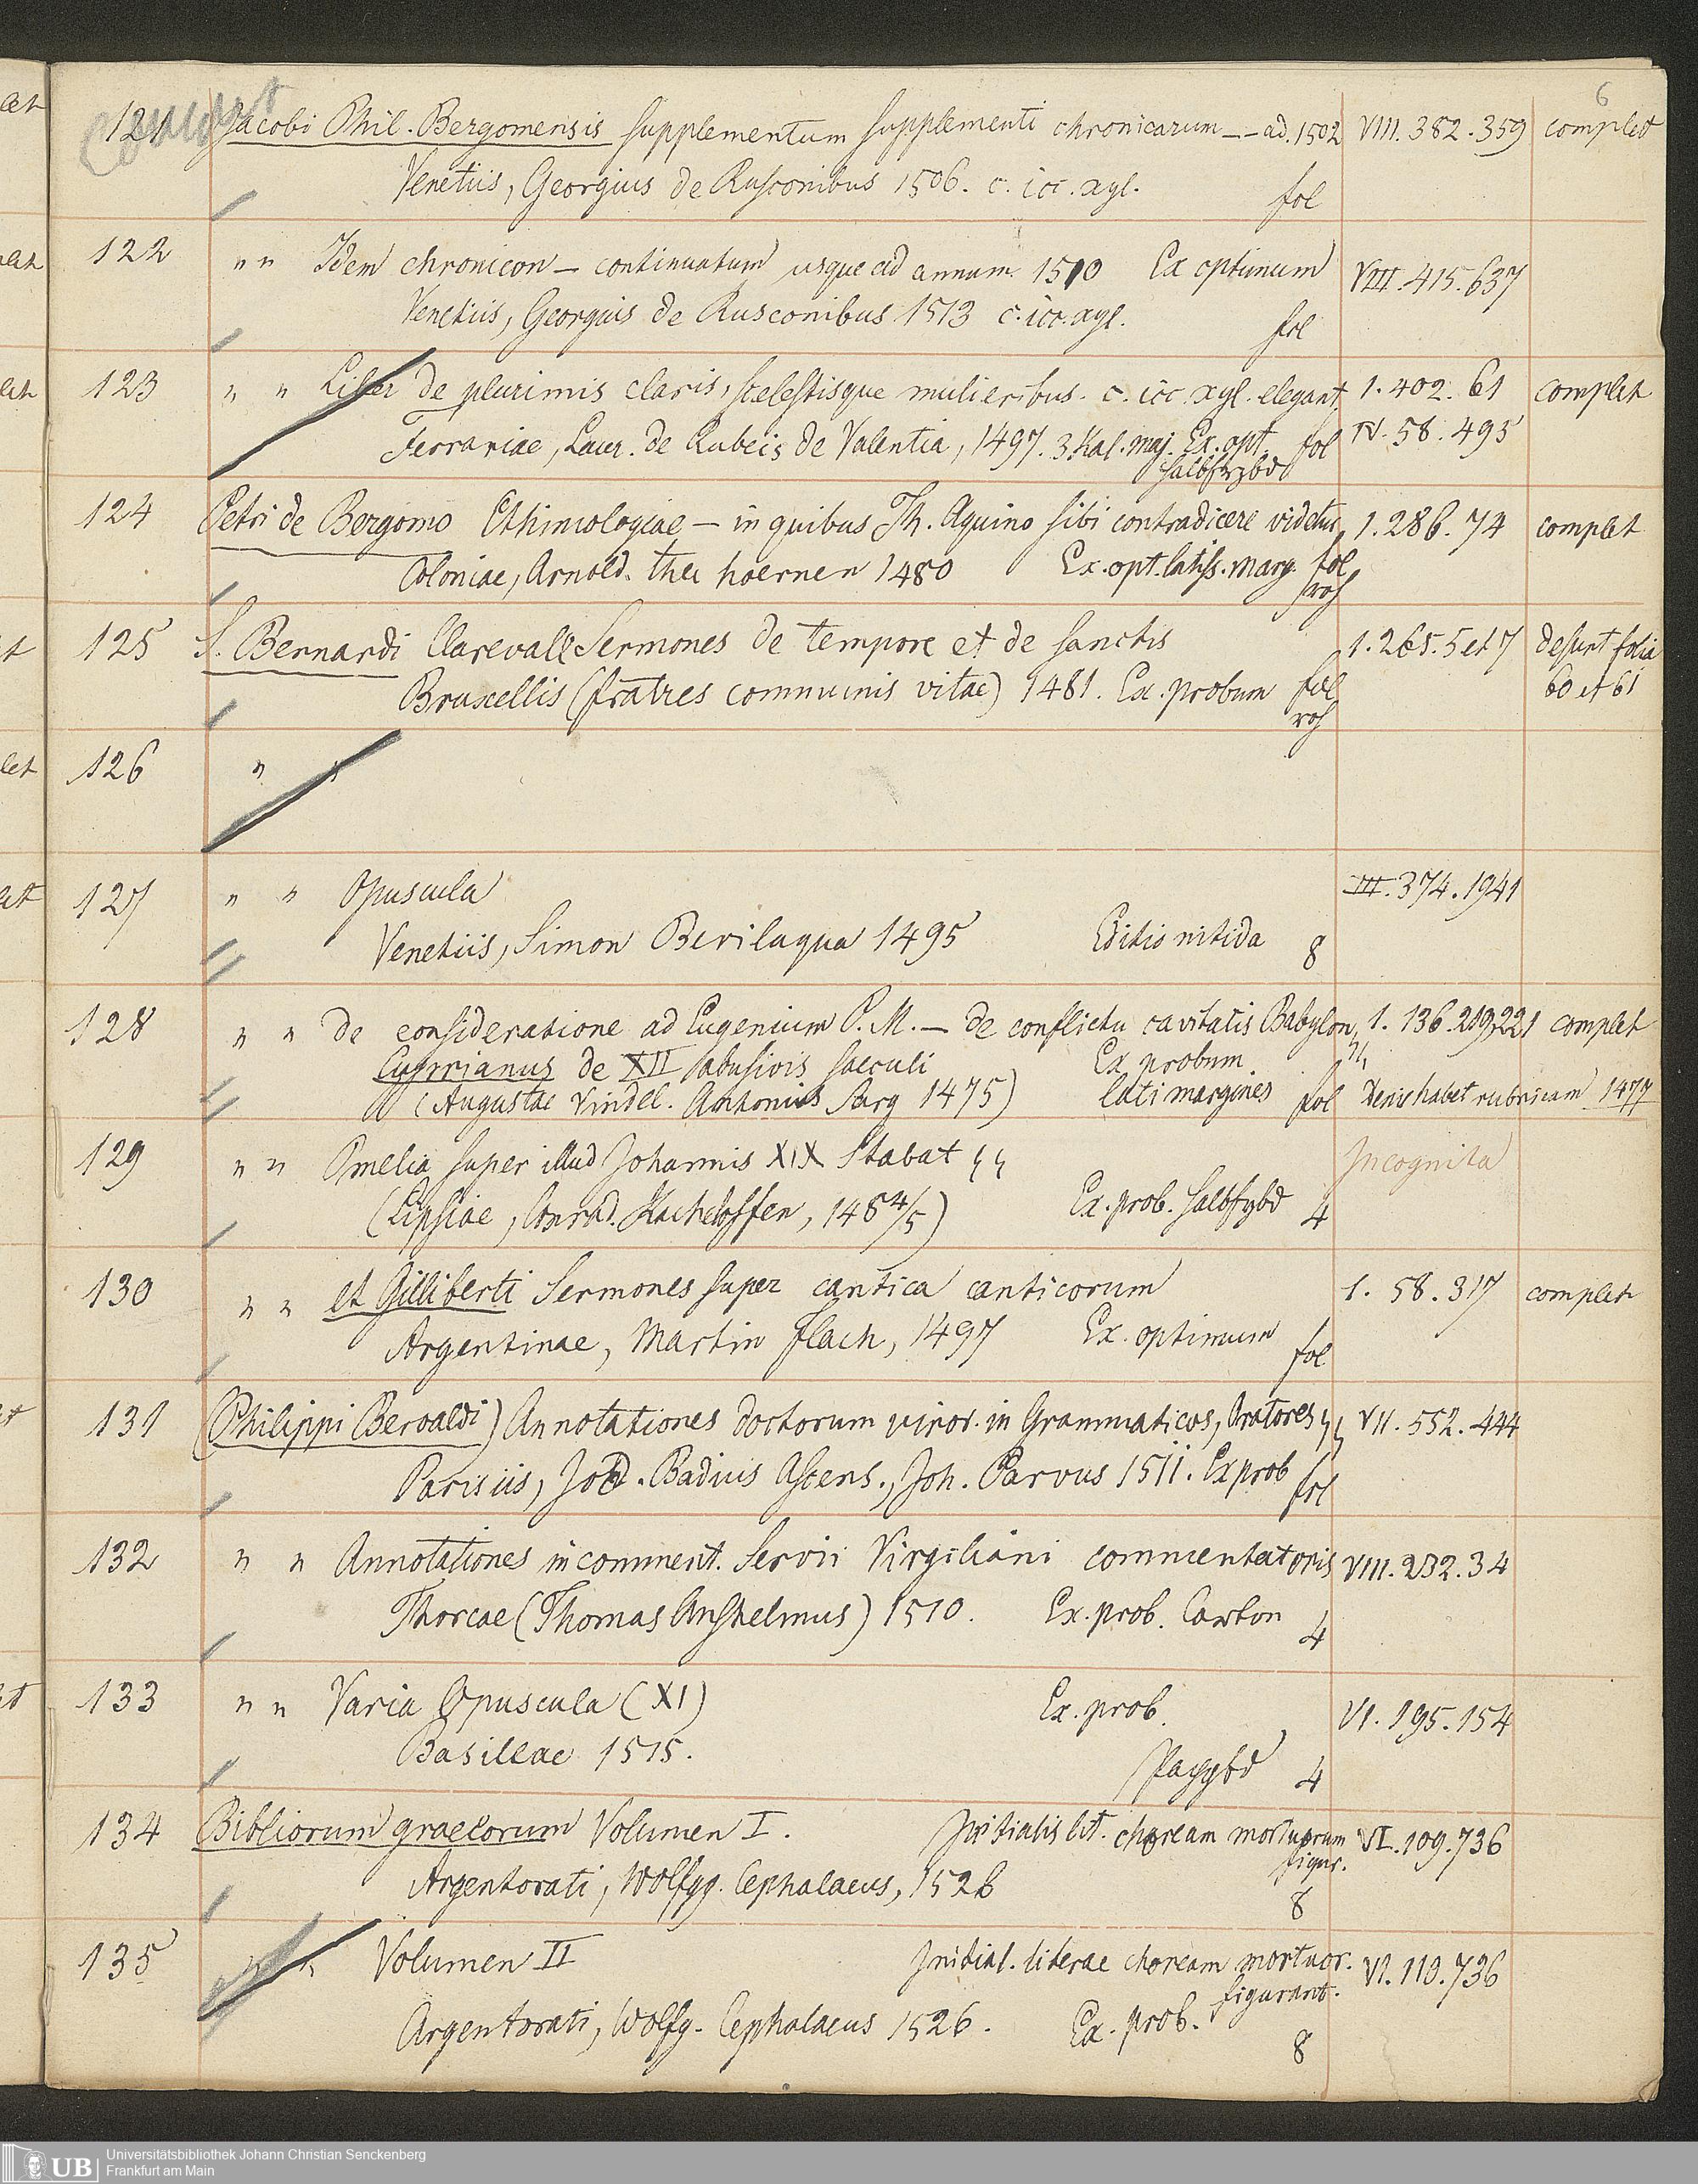 6
121 Jacobi Phil. Bergomensis supplementum supplementi chronicarum – – ad. 1502 VIII. 382. 359 complet
Venetiis, Georgius de Rusconibus 1506. c. icc. xyl. fol
122 " " Idem chronicon – continuatum usque ad annum 1510 Ex optimum VIII. 415. 637
Venetiis, Georgius de Rusconibus 1513 c. icc. xyl. fol
123 " " Liber de plurimis claris, scelestisque mulieribus. c. icc. xyl. elegant. 1. 402. 61 complet
Ferrariae, Laur. de Rubeis de Valentia, 1497. 3. Kal. maj. Ex. opt. fol IV. 58. 495
halbfrzbd
124 Petri de Bergomo Ethimologiae – in quibus Th. Aquino sibi contradicere videtur, 1. 286. 74 complet
Coloniae, Arnold. ther hoernen 1480 Ex. opt. latiss. marg. fol
roh
125 S. Bernardi Clarevall Sermones de tempore et de sanctis 1. 265. 5 et 7 desunt folia
Bruxellis (fratres communis vitae) 1481. Ex. probum fol 60 et 61
roh
126 " "
127 " " Opuscula III. 374. 1941
Venetiis, Simon Berilaqua 1495 Editio nitida 8
128 " " de consideratione ad Eugenium P. M. – de conflictu cavitatis Babylon, 1. 136. 219, 221 complet
Cyprianus de XII abusivis saeculi Ex probum
(Augustae Vindel. Antonius Sorg 1475) lati margines fol Denis habet rubricam 1477
129 " " Omelia super illud Johannis XIX Stabat Incognita
(Lipsiae, Conrad. Kacheloffen, 1484/5) Ex. prob. halbfzbd 4
130 " " et Gilliberti Sermones super cantica canticorum 1. 58. 317 complet
Argentinae, Martin Flach, 1497 Ex. optimum fol
131 (Philippi Beroaldi) Annotationes doctorum viror. in Grammaticos, Oratores VII. 552. 444
Parisiis, Jod. Badius Ascens., Joh. Parvus 1511. Ex prob fol
132 " " Annotationes in comment. Servii Virgiliani commentatoris VIII. 232. 34
Thorcae (Thomas Anshelmus) 1510. Ex. prob. Carton 4
133 " " Varia Opuscula (XI) Ex. prob. VI. 195. 154
Basileae 1515. Pappbd 4
134 Bibliorum graecorum Volumen I. Initialis lit. choream mortuorum VI. 109. 736
figur.
Argentorati, Wolfgg. Cephalaeus, 1526 8
135 " " Volumen II Initial. literae choream mortuor. VI. 110. 736
figurant.
Argentorati, Wolfg. Cephalaeus 1526. Ex. prob. 8
UB Universitätsbibliothek Johann Christian Senckenberg
Frankfurt am Main